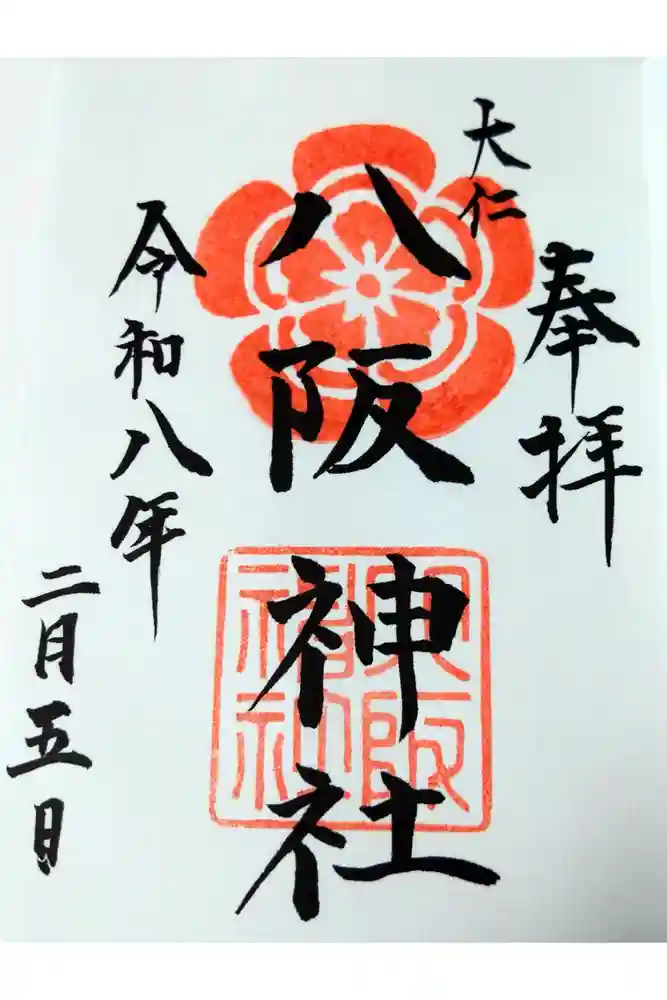 奉拝
大仁
八阪神社
令和八年
二月五日